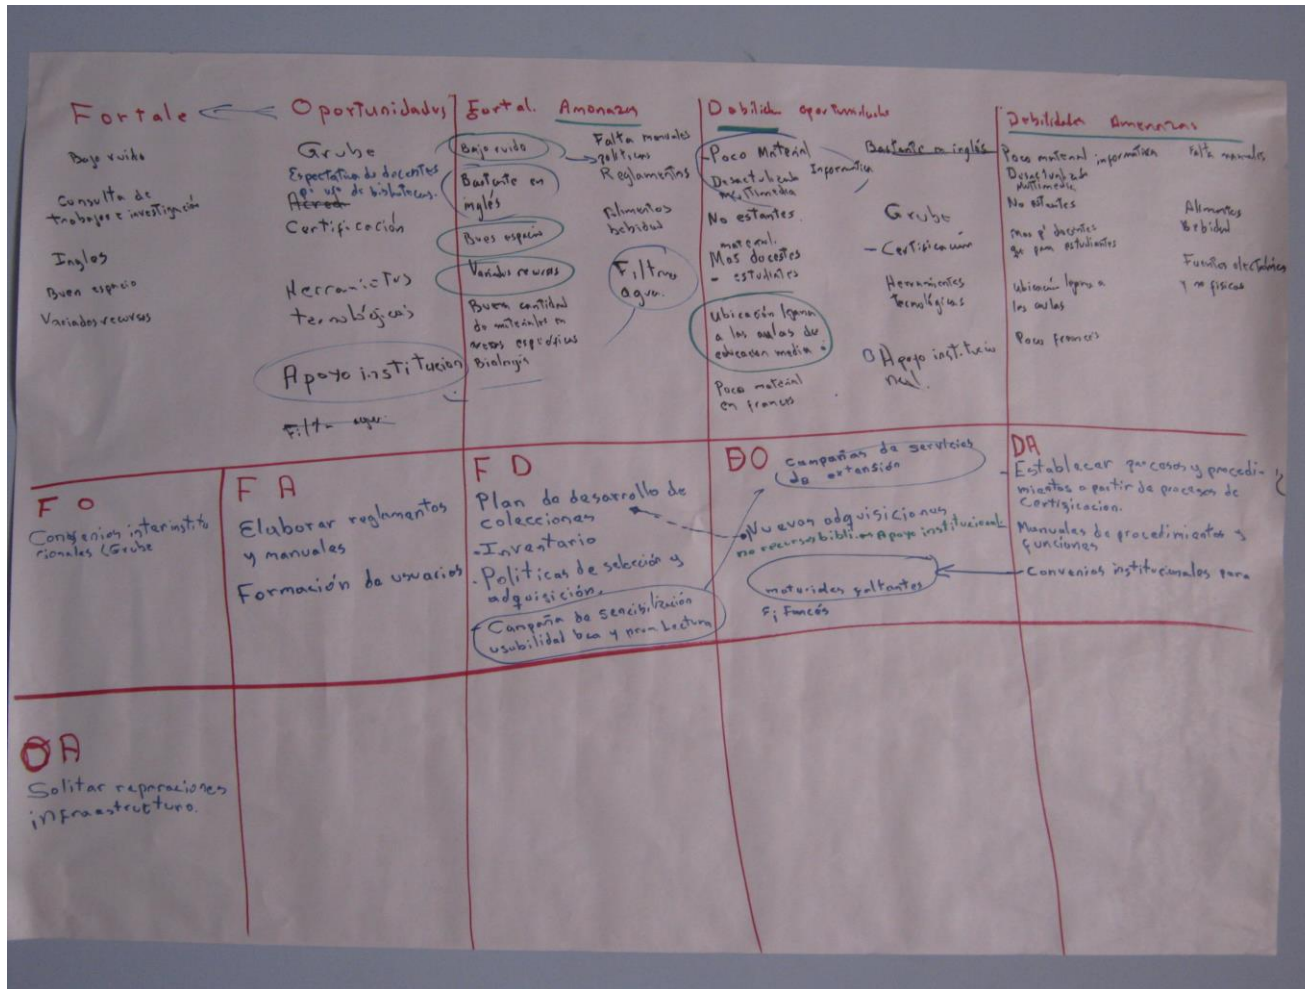 Fortale
Bajo ruido
Consulta de
trabajos e investigación
Ingles
Buen espacio
Variados recursos
Oportunidades
Grube
Expectativa de docentes
de bibliotecas.
Acred
Certificación
Herramientas
tecnológicas
Apoyo institucion
Filtra agua
Fortal. Amenazas
Bajo ruido
Bastante en
inglés
Buen espacio
Variados recursos
Buena cantidad
de materiales en
areas especificas
Biología
Falta manuales
políticas
Reglamentos
Alimentos
bebidas
Filtra
agua.
Debilida oportunidade
Poco Material
Informatica
Desactualizado
multimedia
No estantes.
material.
Mas docestes
- estudiantes
ubicación lejana
a las aulas de
educacion media
Poco material
en frances
Bastante en inglés
Grube
- Certificación
Herramientas
Tecnológicas
Apoyo institucio
nal.
Debilidades Amenazas
Poco material informatica
Desactualizado
Multimedia
No estantes
Mas pª docentes
que para estudiantes
ubicación lejana a
las aulas
Poco frances
Falta manuales
Alimentos
Bebidas
Fuentes electrónicas
y no fisicas
F O
Convenios interinstitu
cionales Grube
F A
Elaborar reglamentos
y manuales
Formación de usuarios
F D
Plan de desarrollo de
colecciones
-Inventario
-Politicas de selección y
adquisición.
- Campaña de sencibilización
usubilidad bca y prom Lectura
DO
Campañas de servicios
de extensión
Nuevos adquisiciones
no recursos biblios Apoyo institucional
materiales faltantes
Ej Francés
DA
- Establecer procesos y procedi-
mientos a partir de procesos de
Certificacion.
Manuales de procedimientos y
funciones
- Convenios institucionales para
OA
Solitar reparaciones
infraestructura.